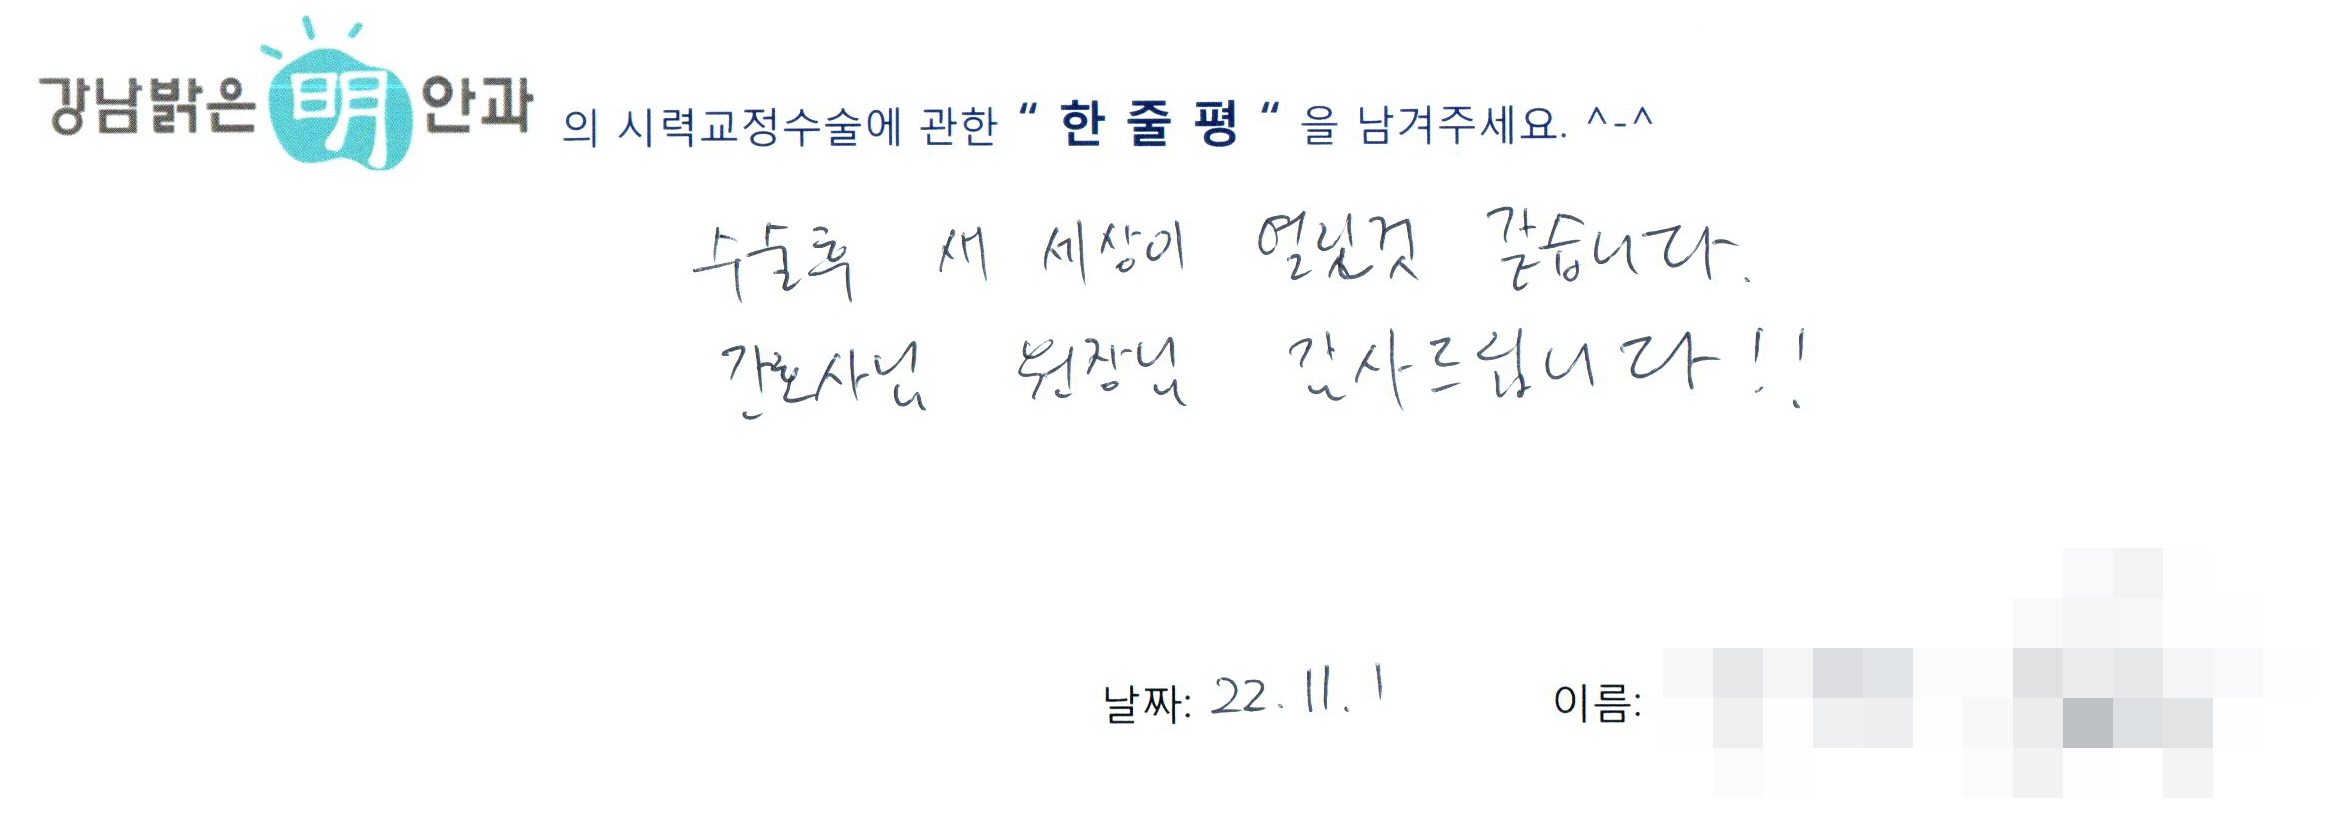 강남밝은 明 안과 의 시력교정수술에 관한 “ 한 줄 평 “ 을 남겨주세요. ^-^
수술후 새 세상이 열린것 같습니다.
간호사님 원장님 감사드립니다!!
날짜: 22. 11. 1 이름: